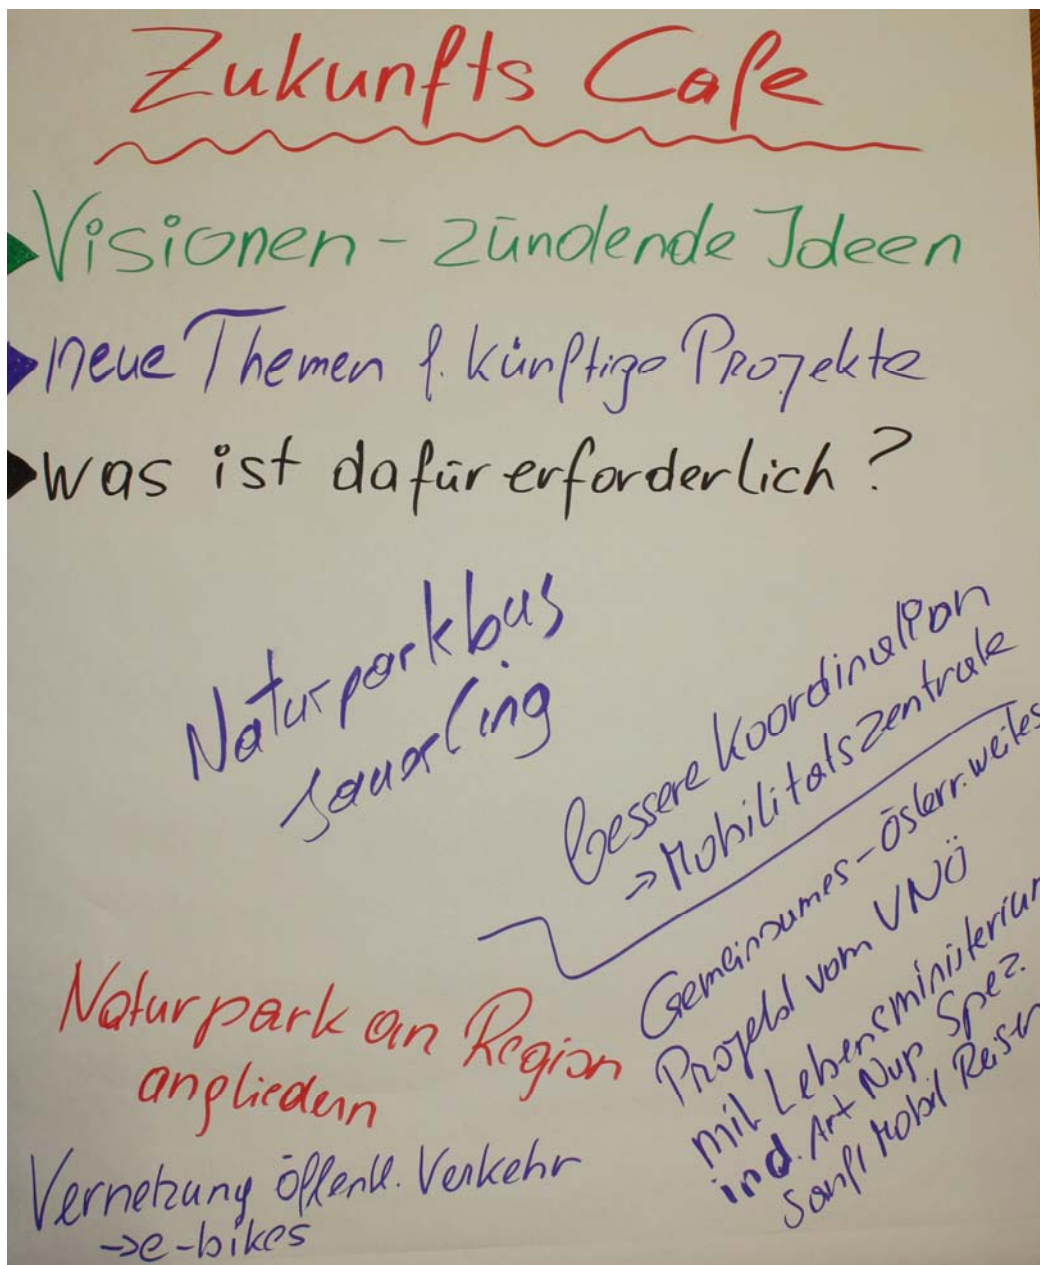 Zukunfts Cafe
Visionen - zündende Ideen
neue Themen f. künftige Projekte
was ist dafür erforderlich?
Naturparkbus
Jauerling
bessere Koordination
→ Mobilitätszentrale
Gemeinsames - österr. weites
Projekt vom VNÖ
mit Lebensministerium
ind. Art Nup Spez.
Sanft Mobil Reisen
Naturpark an Region
angliedern
Vernetzung öffentl. Verkehr
→ e-bikes